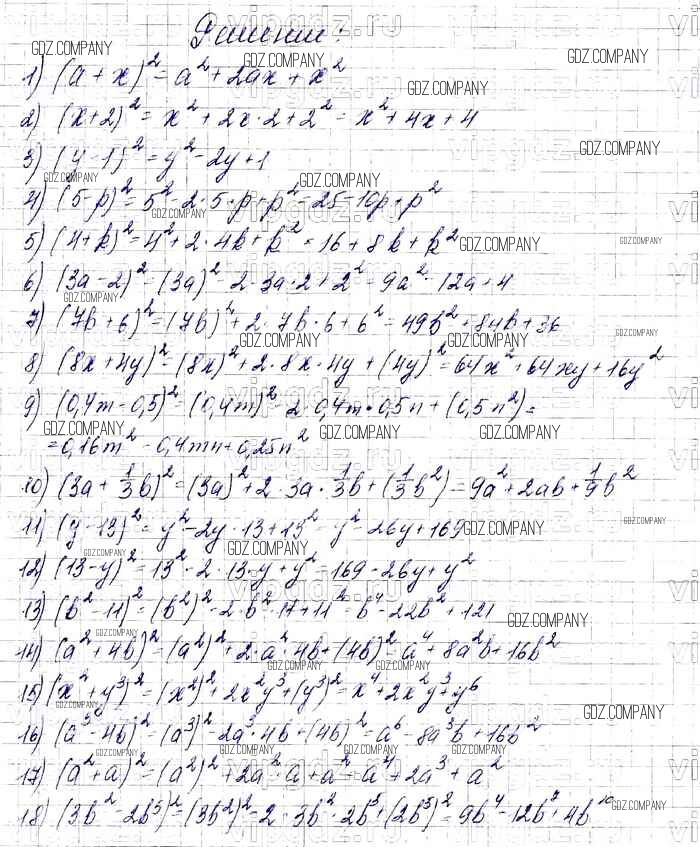 Решение:
1) (a + x)² = a² + 2ax + x²
2) (x+2)² = x² + 2x·2 + 2² = x² + 4x + 4
3) (y-1)² = y² - 2y + 1
4) (5-p)² = 5² - 2·5·p + p² = 25 - 10p + p²
5) (4+k)² = 4² + 2·4k + k² = 16 + 8k + k²
6) (3a-2)² = (3a)² - 2·3a·2 + 2² = 9a² - 12a + 4
7) (7b+6)² = (7b)² + 2·7b·6 + 6² = 49b² + 84b + 36
8) (8x+4y)² = (8x)² + 2·8x·4y + (4y)² = 64x² + 64xy + 16y²
9) (0,4m - 0,5)² = (0,4m)² - 2·0,4m·0,5n + (0,5n²) =
= 0,16m² - 0,4mn + 0,25n²
10) (3a + 1/3b)² = (3a)² + 2·3a·1/3b + (1/3b²) = 9a² + 2ab + 1/9b²
11) (y-13)² = y² - 2y·13 + 13² = y² - 26y + 169
12) (13-y)² = 13² - 2·13·y + y² = 169 - 26y + y²
13) (b²-11)² = (b²)² - 2·b²·11 + 11² = b⁴ - 22b² + 121
14) (a²+4b)² = (a²)² + 2·a²·4b + (4b)² = a⁴ + 8a²b + 16b²
15) (x²+y³)² = (x²)² + 2x²y³ + (y³)² = x⁴ + 2x²y³ + y⁶
16) (a³-4b)² = (a³)² - 2a³·4b + (4b)² = a⁶ - 8a³b + 16b²
17) (a²+a)² = (a²)² + 2a²·a + a² = a⁴ + 2a³ + a²
18) (3b²-2b⁵)² = (3b²)² - 2·3b²·2b⁵ + (2b⁵)² = 9b⁴ - 12b⁷ + 4b¹⁰
GDZ.COMPANY
vipgdz.ru